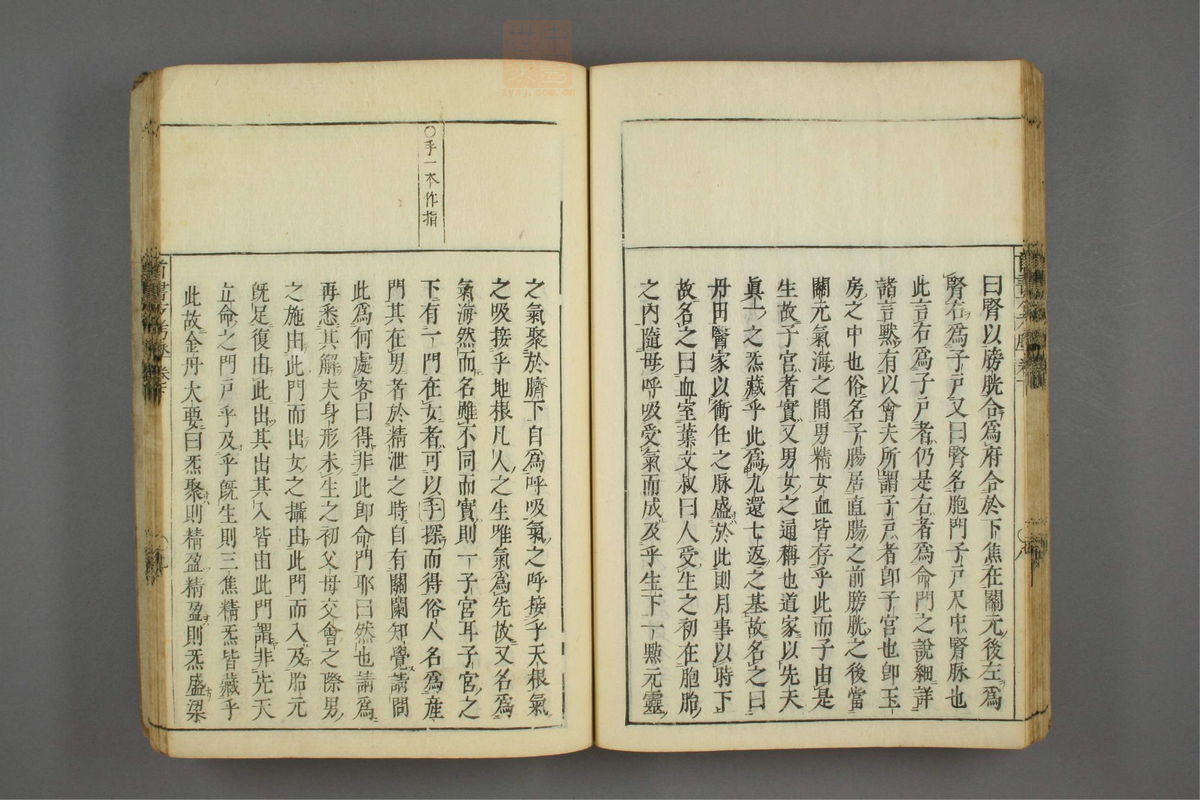 曰腎以膀胱合爲府合於下焦在關元後左爲
腎右爲子戶又曰腎名胞門子戶尺中腎脉也
此言右爲子戶者仍是右者爲命門之說細詳
諸言黙有以會夫所謂子戶者卽子宮也卽玉
房之中也俗名子腸居直腸之前膀胱之後當
關元氣海之間男精女血皆存乎此而子由是
生故子宮者實又男女之通稱也道家以先天
眞一之炁藏乎此爲九還七返之基故名之曰
丹田醫家以衝任之脉盛於此則月事以時下
故名之曰血室葉文叔曰人受生之初在胞胎
之內隨母呼吸受氣而成及乎生下一㸃元靈
之氣聚於臍下自爲呼吸氣之呼接乎天根氣
之吸接乎地根凡人之生唯氣爲先故又名爲
氣海然而名雖不同而實則一子宮耳子宮之
下有一門在女者可以手探而得俗人名爲產
門其在男者於精泄之時自有關闌知覺請問
此爲何處客曰得非此卽命門耶曰然也請爲
再悉其解夫身形未生之初父母交會之際男
之施由此門而出女之攝由此門而入及胎元
旣足復由此出其出其入皆由此門謂非先天
立命之門戶乎及乎旣生則三焦精炁皆藏乎
此故金丹大要曰炁聚則精盈精盈則炁盛梁
〇手一本作指